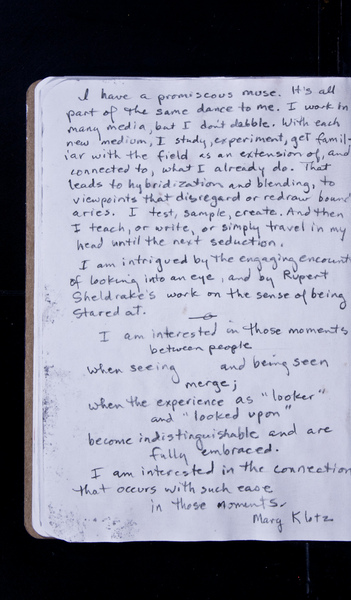 I have a promiscous muse. It's all
part of the same dance to me. I work in
many media, but I don't dabble. With each
new medium, I study, experiment, get famil-
iar with the field as an extension of, and
connected to, what I already do. That
leads to hybridization and blending, to
viewpoints that disregard or redraw bound
aries. I test, sample, create. And then
I teach, or write, or simply travel in my
head until the next seduction.
I am intrigued by the engaging encount
of looking into an eye, and by Rupert
Sheldrake's work on the sense of being
stared at.
I am interested in those moments
between people
when seeing and being seen
merge;
when the experience as "looker"
and "looked upon"
become indistinguishable and are
fully embraced.
I am interested in the connection
that occurs with such ease
in those moments.
Mary Klotz